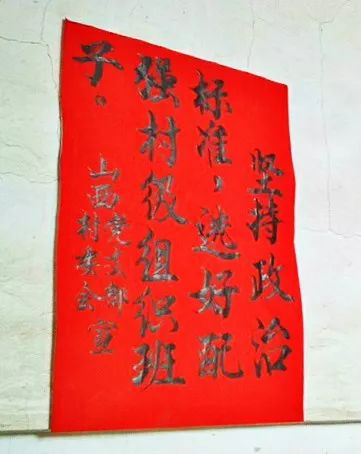 坚持政治
标准，选好配
强村级组织班
子。
山西党支部
村委会宣